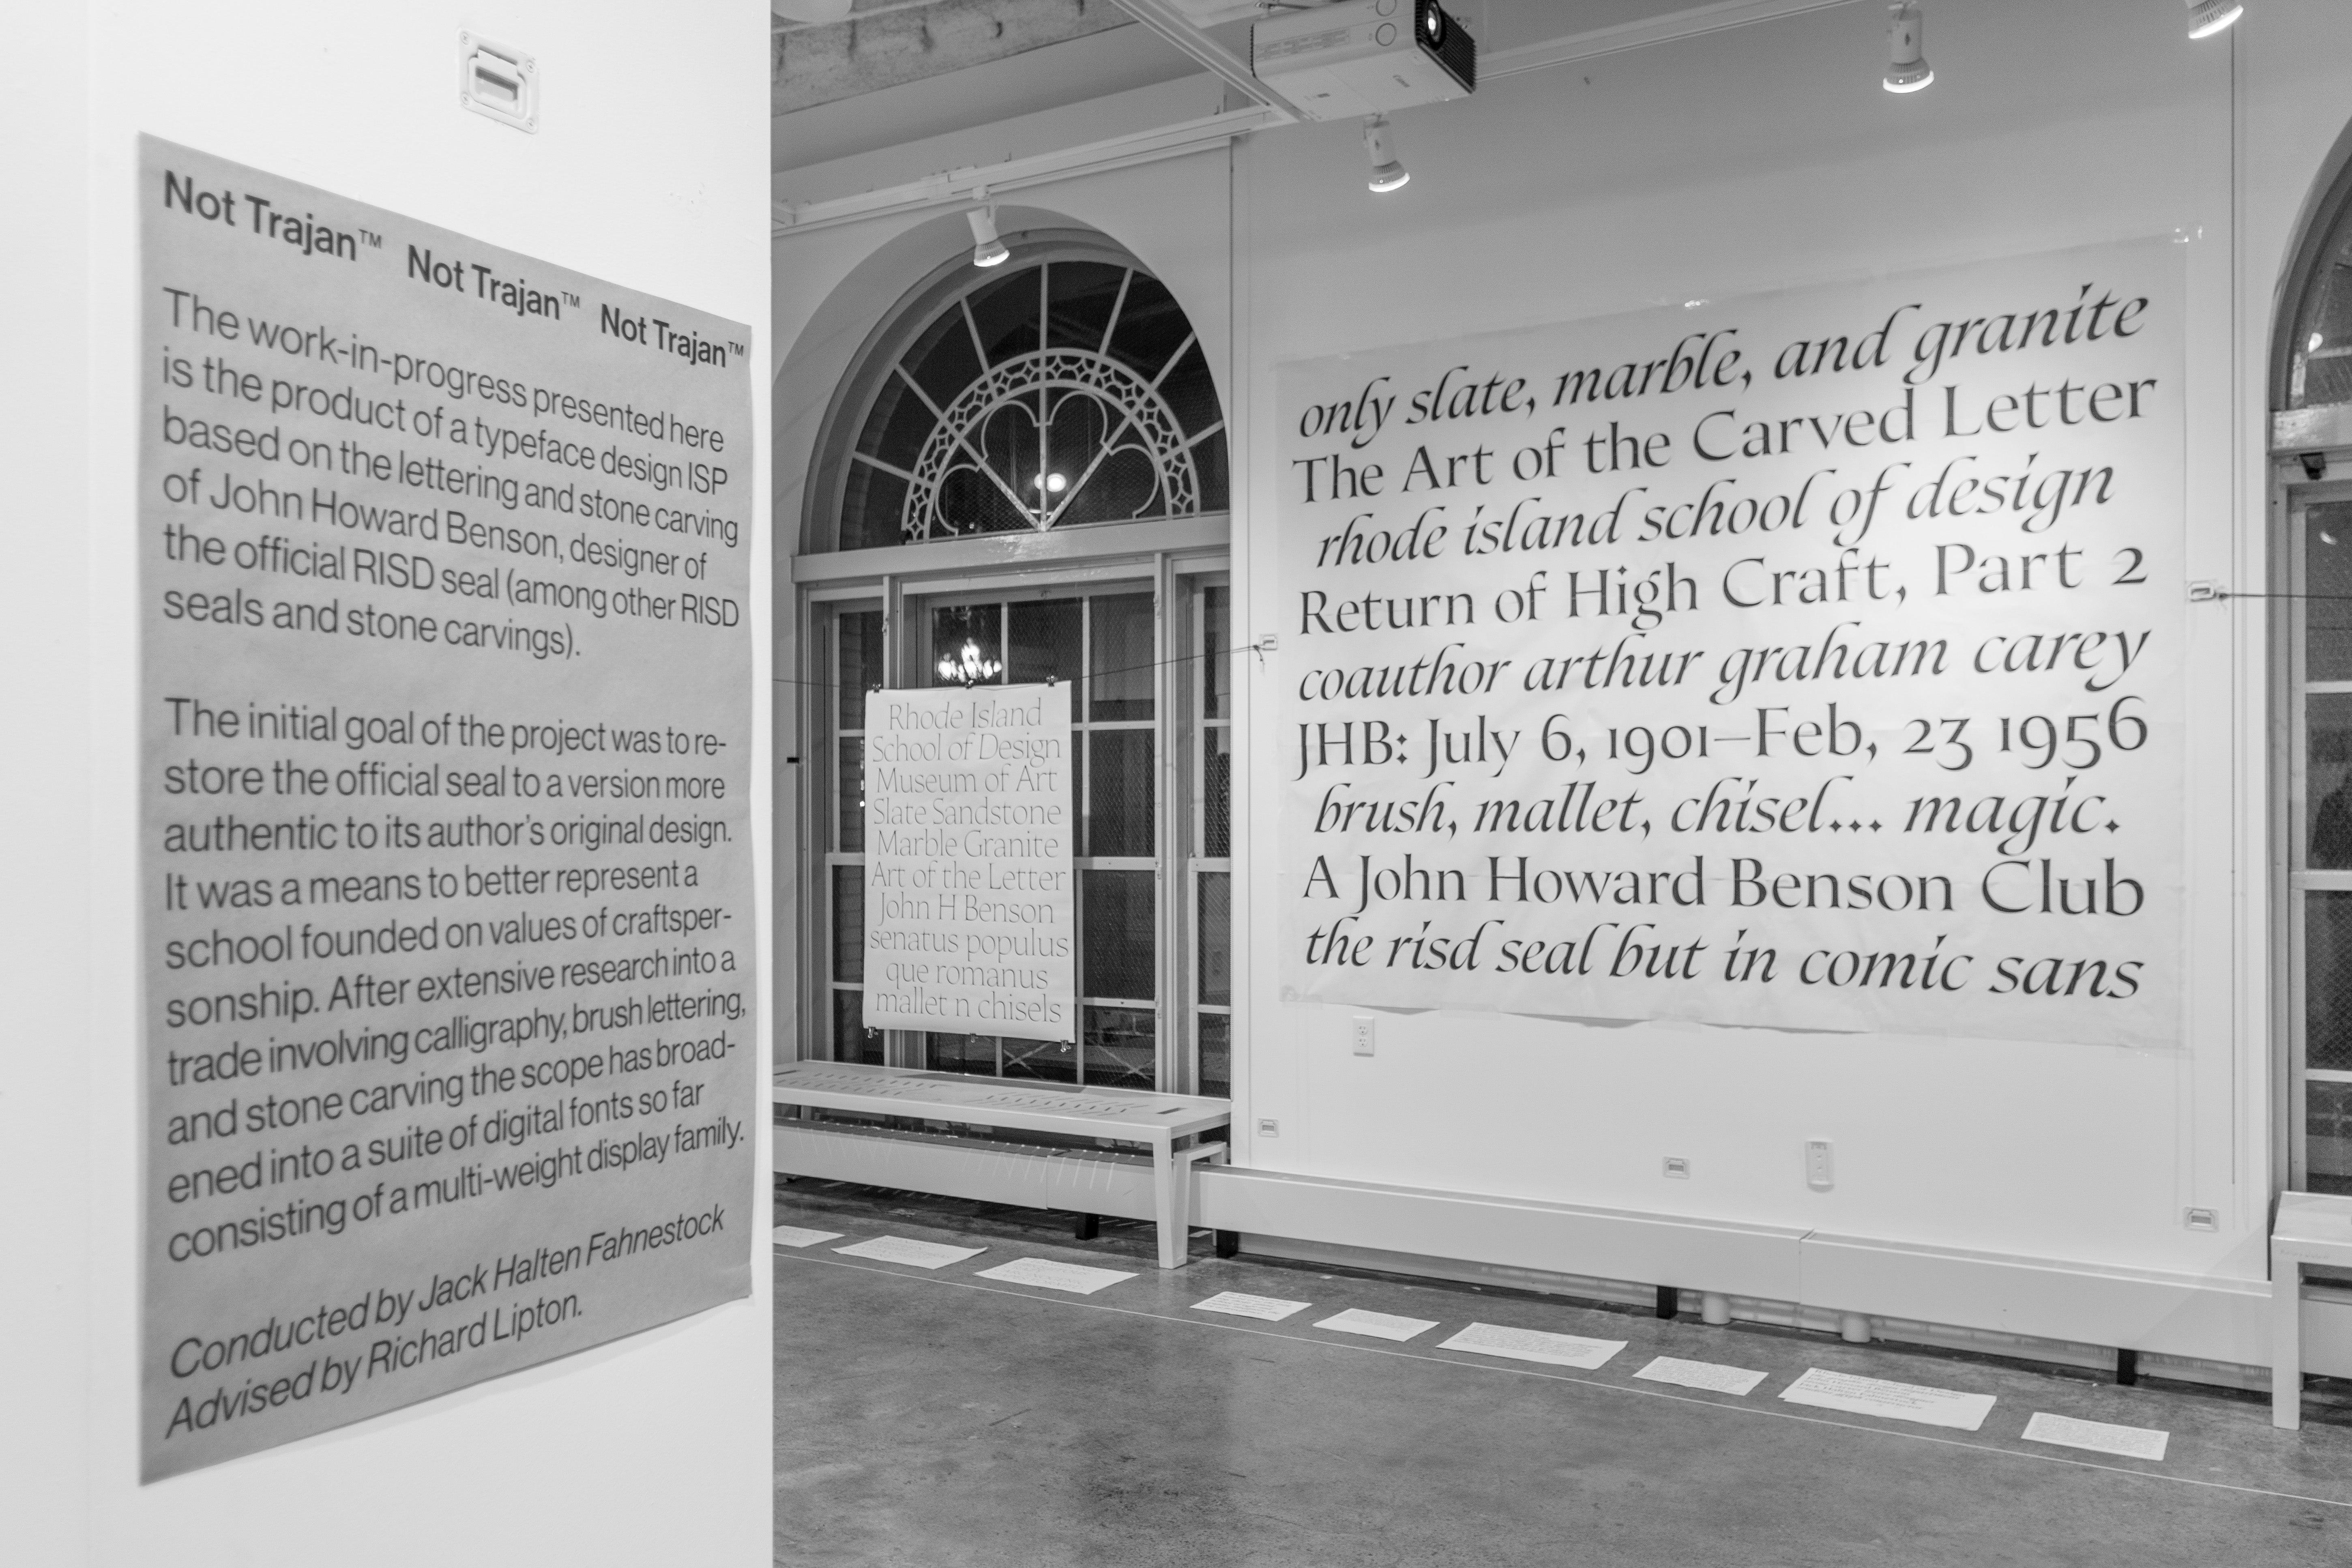 Not Trajan™ Not Trajan™ Not Trajan™
The work-in-progress presented here
is the product of a typeface design ISP
based on the lettering and stone carving
of John Howard Benson, designer of
the official RISD seal (among other RISD
seals and stone carvings).
The initial goal of the project was to re-
store the official seal to a version more
authentic to its author's original design.
It was a means to better represent a
school founded on values of craftsper-
sonship. After extensive research into a
trade involving calligraphy, brush lettering,
and stone carving the scope has broad-
ened into a suite of digital fonts so far
consisting of a multi-weight display family.
Conducted by Jack Halten Fahnestock
Advised by Richard Lipton.
Rhode Island
School of Design
Museum of Art
Slate Sandstone
Marble Granite
Art of the Letter
John H Benson
senatus populus
que romanus
mallet n chisels
only slate, marble, and granite
The Art of the Carved Letter
rhode island school of design
Return of High Craft, Part 2
coauthor arthur graham carey
JHB: July 6, 1901–Feb, 23 1956
brush, mallet, chisel... magic.
A John Howard Benson Club
the risd seal but in comic sans